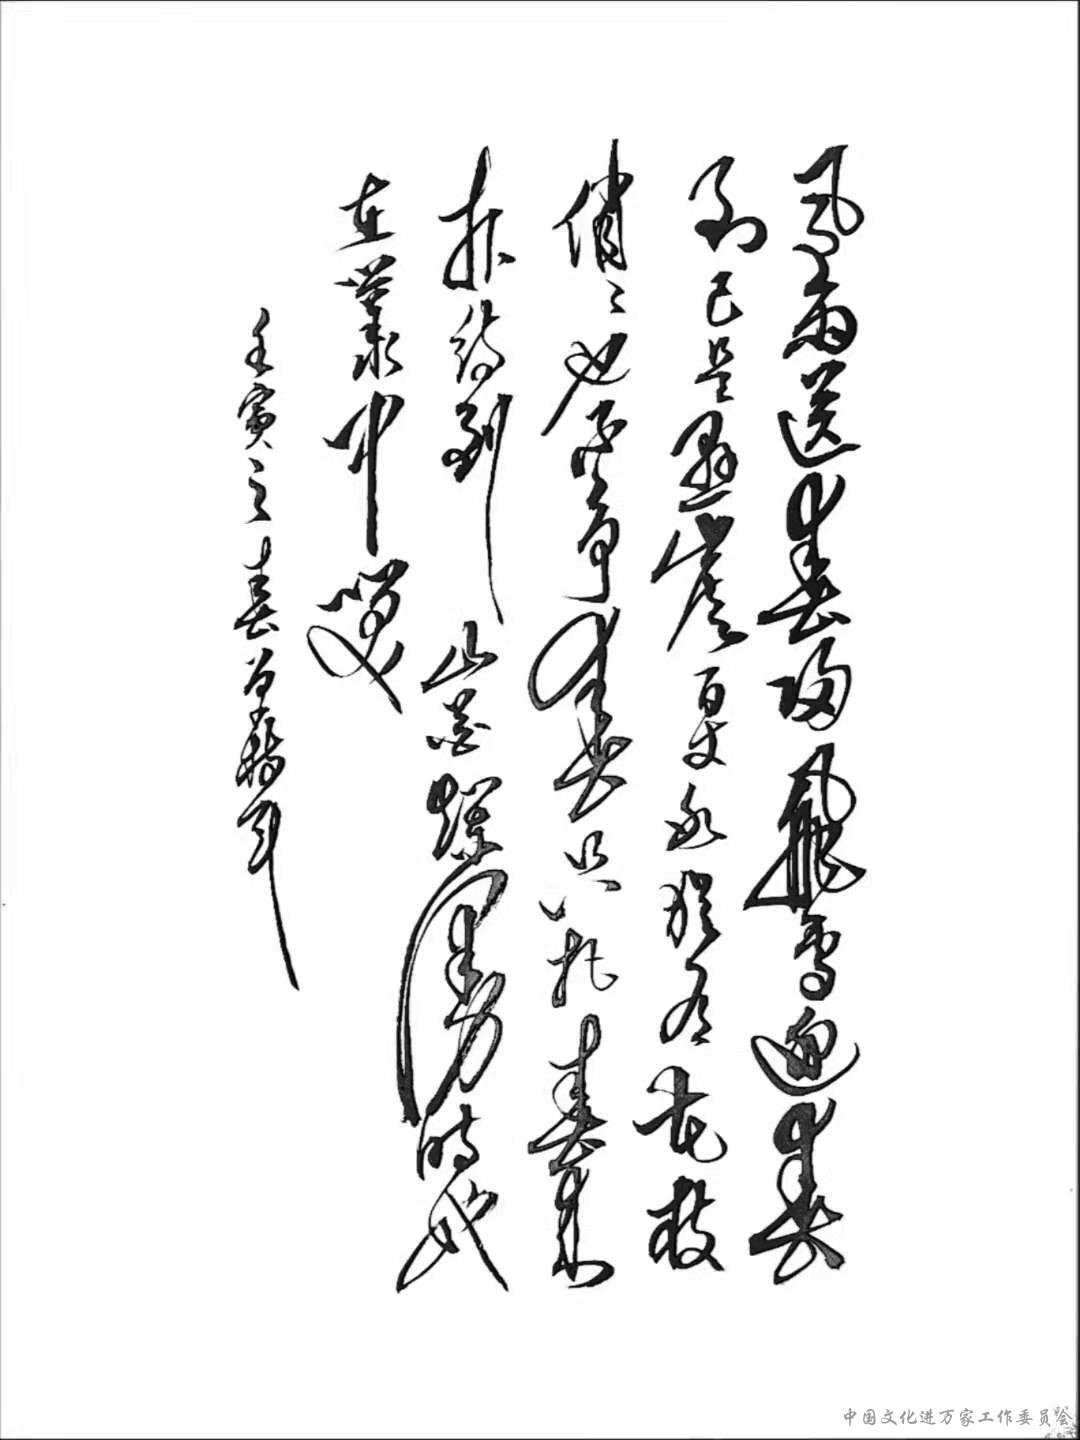 風雨送春归飛雪迎春
到已是悬崖百丈冰猶有花枝
俏〻也不争春只把春来
报待到山花爛漫時她
在叢中笑
壬寅之春
中国文化进万家工作委员会